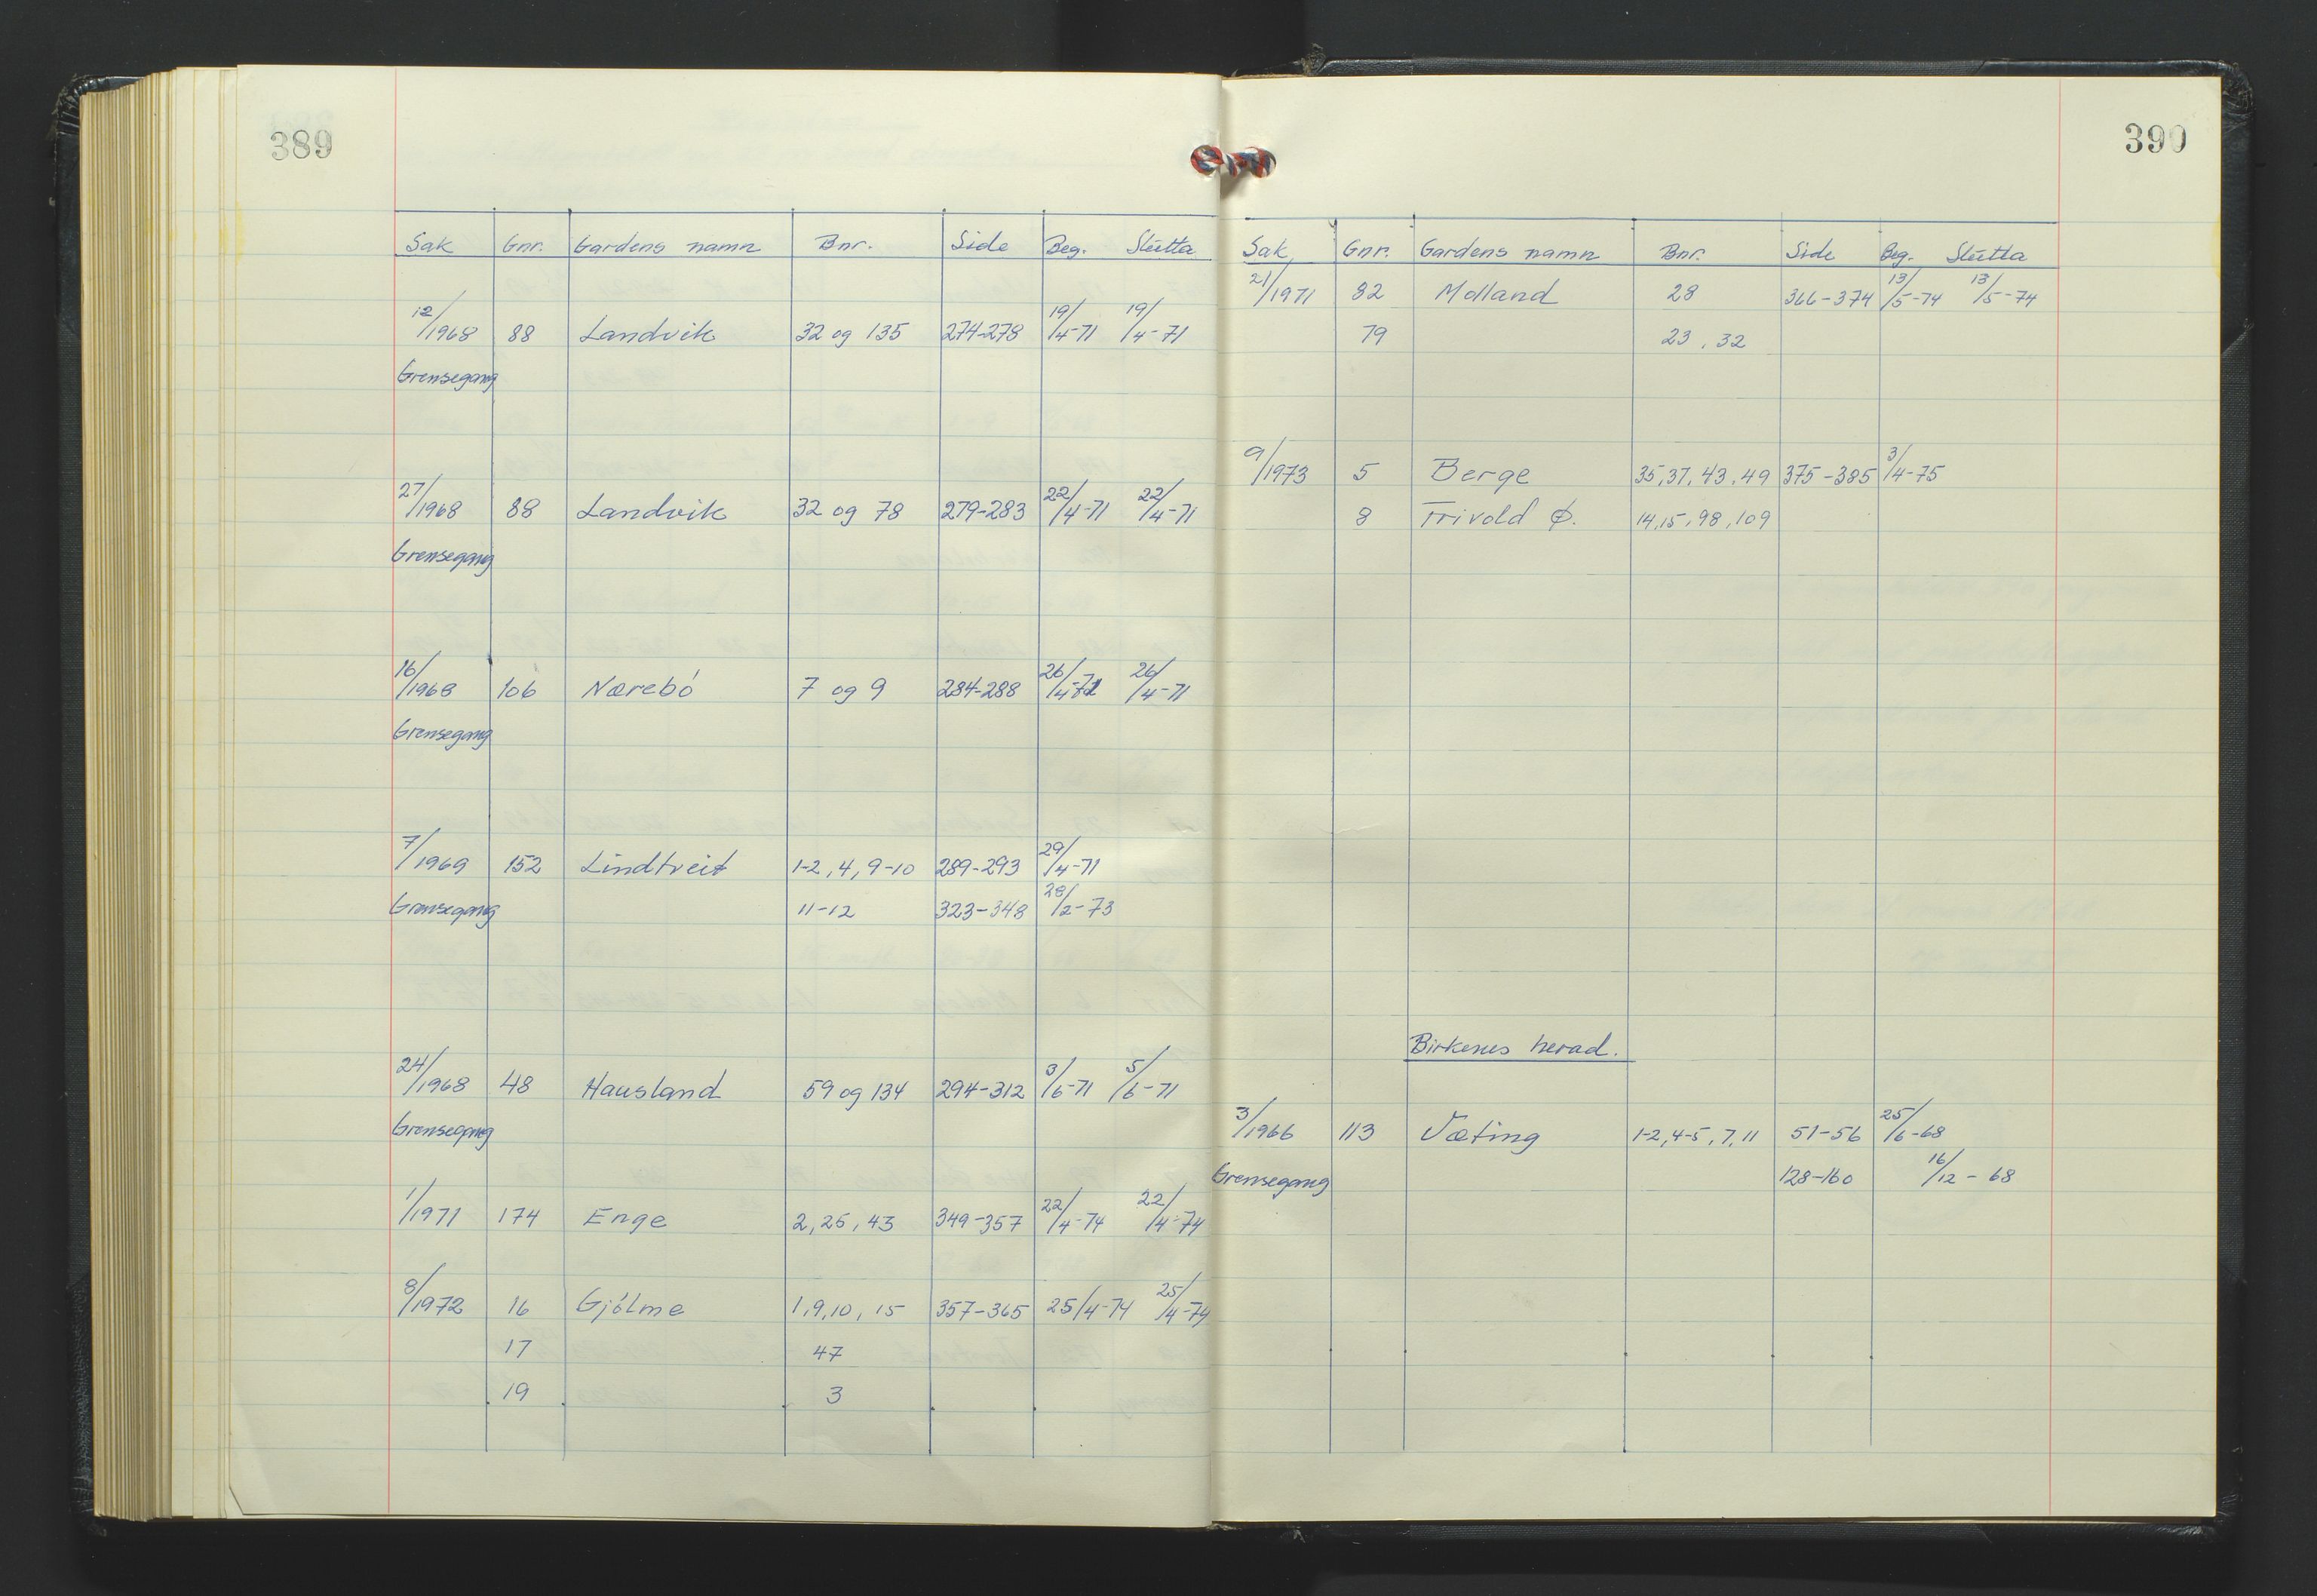 389
Sak Gnr. Gardens namn Bnr. Side Beg. Slutta
12/1968 88 Landvik 32 og 135 274-278 19/4-71 19/4-71
Grensegang
27/1968 88 Landvik 32 og 78 279-283 22/4-71 22/4-71
Grensegang
16/1968 106 Nærebö 7 og 9 284-288 26/4-71 26/4-71
Grensegang
7/1969 152 Lindtveit 1-2, 4, 9-10 289-293 29/4-71
Grensegang 11-12 323-348 28/2-73
24/1968 48 Hausland 59 og 134 294-312 3/6-71 5/6-71
Grensegang
1/1971 174 Enge 2, 25, 43 349-357 22/4-74 22/4-74
8/1972 16 Gjölme 1,9,10, 15 357-365 25/4-74 25/4-74
17 47
19 3
390
Sak Gnr. Gardens namn Bnr. Side Beg. Slutta
21/1971 82 Molland 28 366-374 13/5-74 13/5-74
79 23, 32
9/1973 5 Berge 35,37,43,49 375-385 3/4-75
8 Trivold Ø. 14,15,98,109
Birkenes herad.
3/1966 113 Væting 1-2, 4-5, 7, 11 51-56 25/6-68
Grensegang 128-160 16/12-68